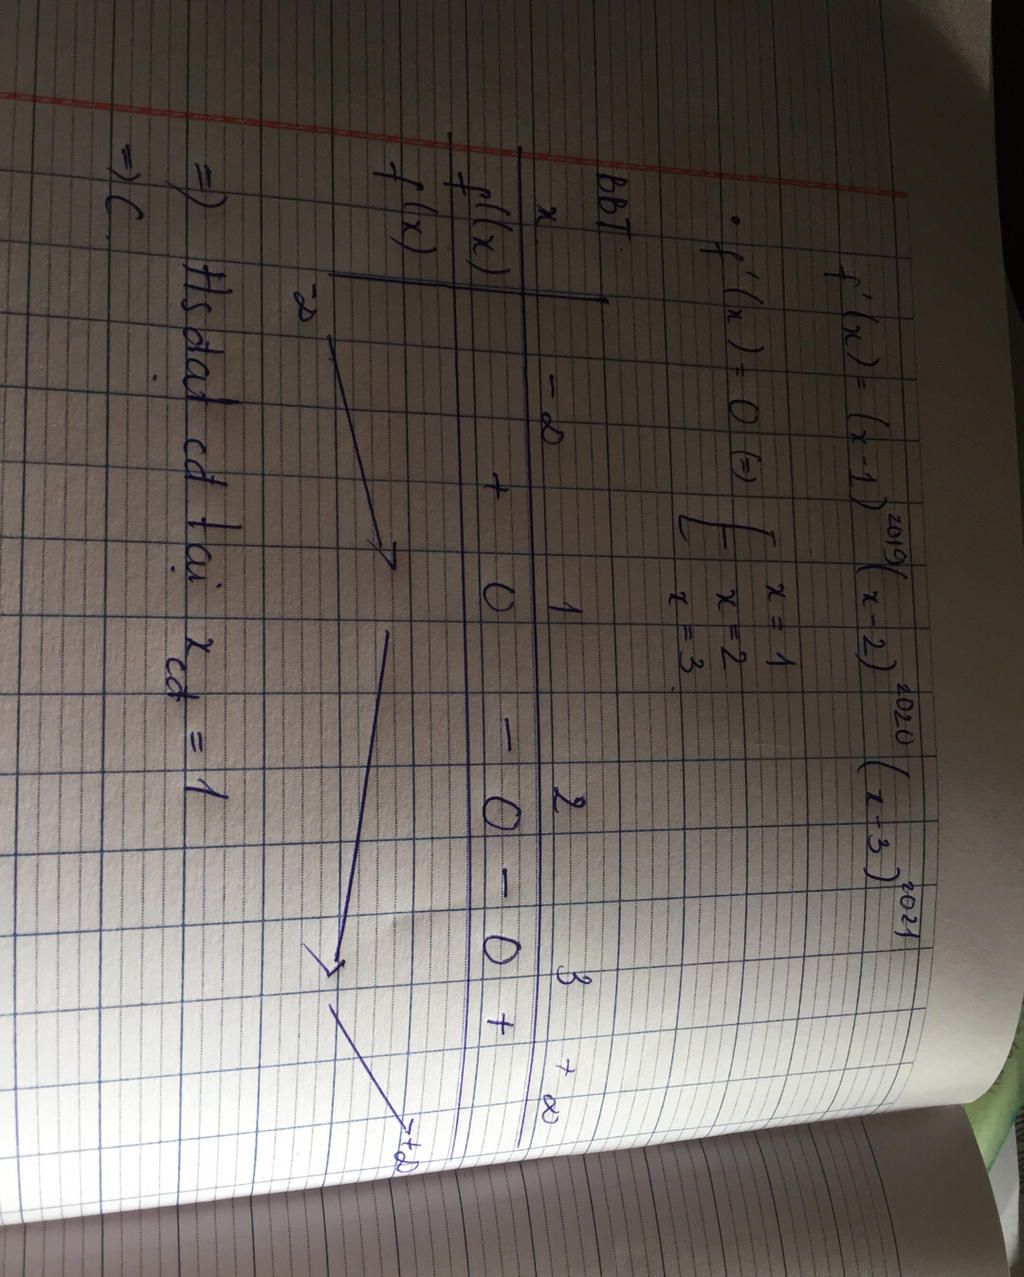 f'(x) = (x-1)^2019 (x-2)^2020 (x-3)^2021
• f'(x) = 0 (=) [ x = 1
x = 2
x = 3
BBT
x -∞ 1 2 3 +∞
f'(x) + 0 - 0 - 0 +
f(x) +∞
-∞
=) Hsđạt cđ tại x cđ = 1
=) C.